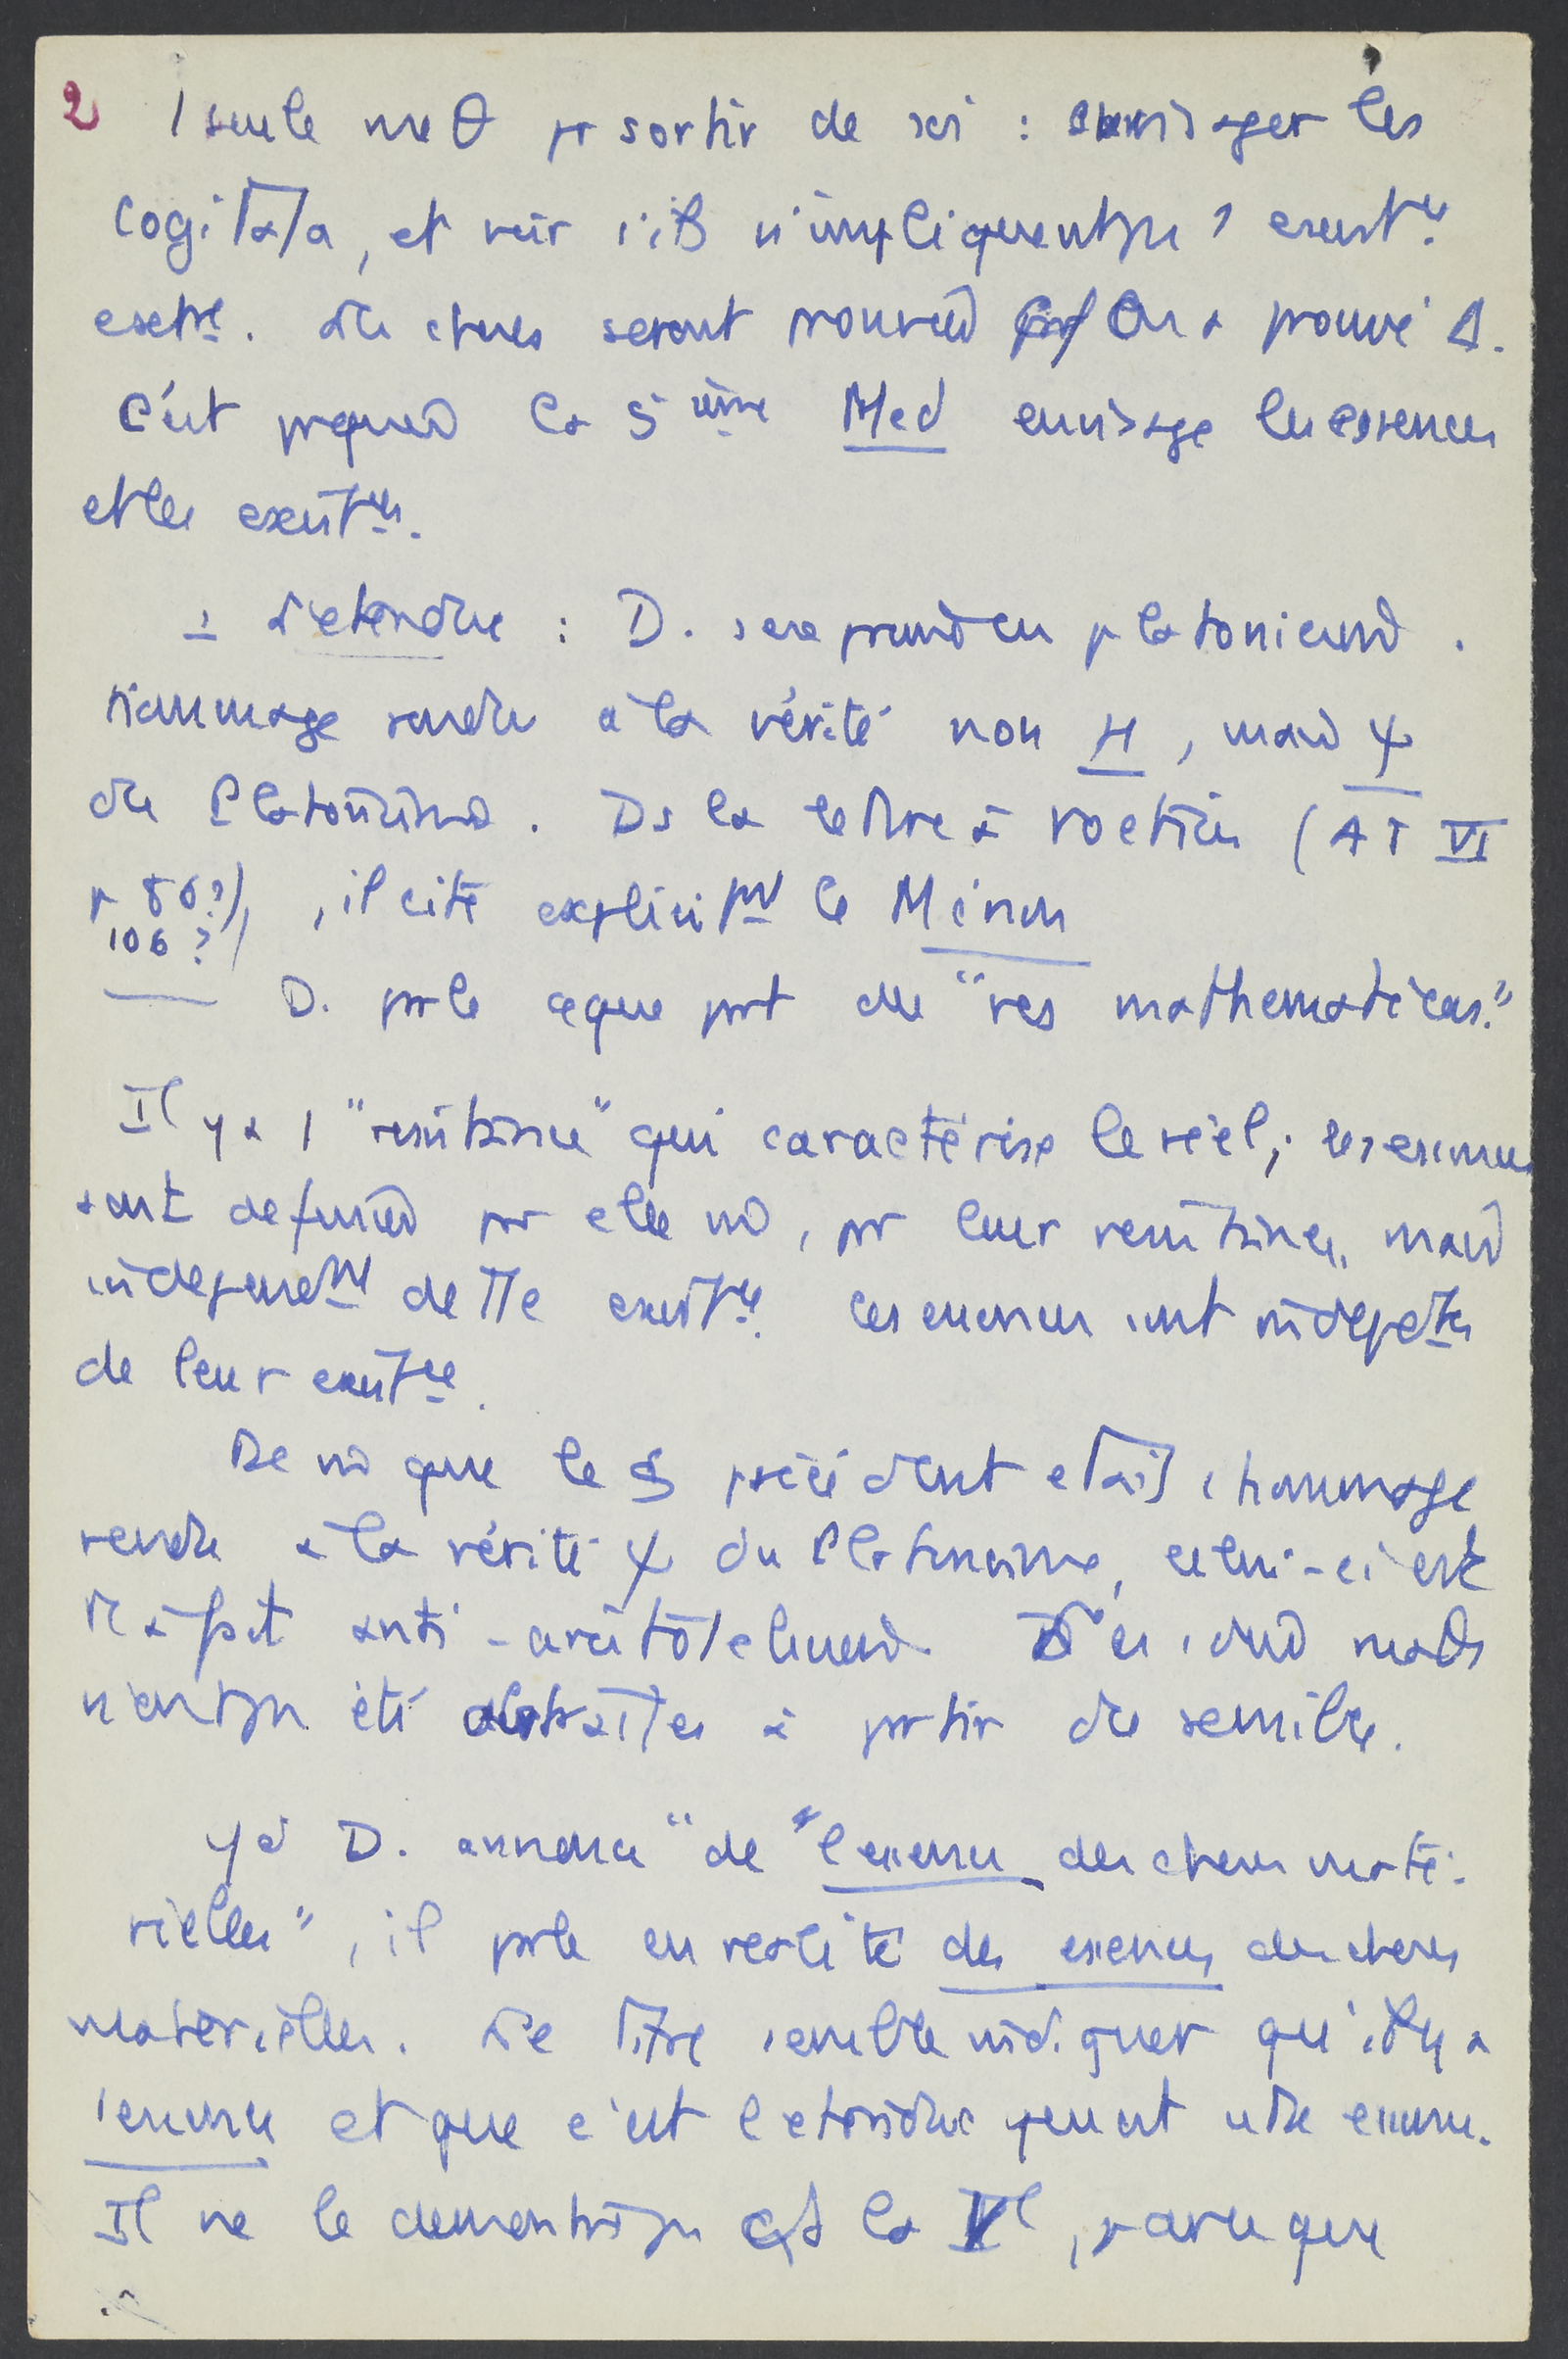 2 1 seule metθ pr sortir de soi : envisager les
cogitata, et voir s'ils n'impliquent pas 1 existce
extre. Les choses seront prouvées On a prouvé Δ.
C'est pourquoi la 5ième Med envisage les essences
et les existces.
L'etendue : D. sera prudent platonicien.
Hommage rendu à la vérité non H, mais ψ
du Platonisme. Ds la lettre à Voetius (AT VI
p 86?), il cite explicitmt le Ménon
106 ?)
D. parle qque part des "res mathematicas."
Il y a 1 "resistance" qui caractérise le réel ; les essences
sont definies pr elle, pr leur resistance, mais
independmt de tte existce. Les essences sont indepdtes
de leur existce.
De m que le § précédent etait 1 hommage
rendu à la vérité ψ du Platonisme, celui-ci est
tt à fait anti-aristotelicien. Les idées math
n'ont pas été abstraites à partir du sensible.
D. annonce "de l'essence des choses maté-
rielles", il parle en realité des essences des choses
materielles. Le titre semble indiquer qu'il y a
1 essence et que c'est l'etendue qui est cette essence.
Il ne le demontre pas la VI, parce que